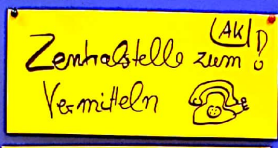 AK!
Zentralstelle zum
Vermitteln